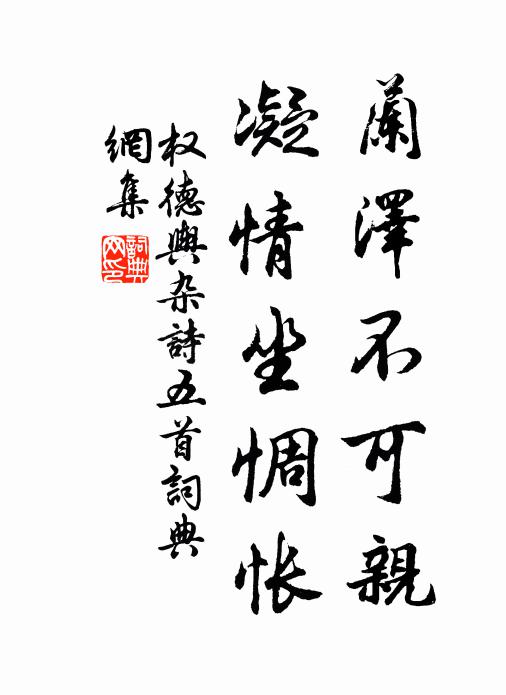 蘭澤不可親
凝情坐惆怅
权德輿杂詩五首詞典
網集
詞典
网印